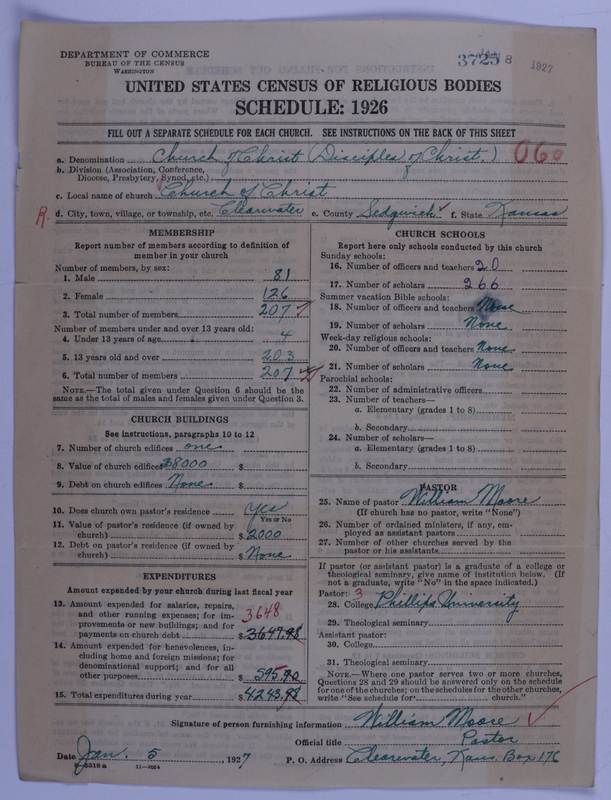 DEPARTMENT OF COMMERCE
BUREAU OF THE CENSUS
WASHINGTON
3725 8 1927
UNITED STATES CENSUS OF RELIGIOUS BODIES
SCHEDULE: 1926
FILL OUT A SEPARATE SCHEDULE FOR EACH CHURCH. SEE INSTRUCTIONS ON THE BACK OF THIS SHEET
a. Denomination Church of Christ (Disciples of Christ.) 060
b. Division (Association, Conference, Diocese, Presbytery, Synod, etc.)
c. Local name of church Church of Christ
R. d. City, town, village, or township, etc. Clearwater e. County Sedgwick f. State Kansas
MEMBERSHIP
Report number of members according to definition of member in your church
Number of members, by sex:
1. Male 81
2. Female 126
3. Total number of members 207
Number of members under and over 13 years old:
4. Under 13 years of age 4
5. 13 years old and over 203
6. Total number of members 207
NOTE.—The total given under Question 6 should be the same as the total of males and females given under Question 3.
CHURCH BUILDINGS
See instructions, paragraphs 10 to 12
7. Number of church edifices one
8. Value of church edifices $8000 $
9. Debt on church edifices None $
10. Does church own pastor's residence yes
Yes or No
11. Value of pastor's residence (if owned by church) $ 2000
12. Debt on pastor's residence (if owned by church) $ None
EXPENDITURES
Amount expended by your church during last fiscal year
13. Amount expended for salaries, repairs, and other running expenses; for improvements or new buildings; and for payments on church debt 3648 $ 3647.98
14. Amount expended for benevolences, including home and foreign missions; for denominational support; and for all other purposes $ 595.90
15. Total expenditures during year $ 4243.98
CHURCH SCHOOLS
Report here only schools conducted by this church
Sunday schools:
16. Number of officers and teachers 20
17. Number of scholars 266
Summer vacation Bible schools:
18. Number of officers and teachers None
19. Number of scholars None.
Week-day religious schools:
20. Number of officers and teachers None
21. Number of scholars None
Parochial schools:
22. Number of administrative officers
23. Number of teachers—
a. Elementary (grades 1 to 8)
b. Secondary
24. Number of scholars—
a. Elementary (grades 1 to 8)
b. Secondary
PASTOR
25. Name of pastor William Moore
(If church has no pastor, write "None")
26. Number of ordained ministers, if any, employed as assistant pastors
27. Number of other churches served by the pastor or his assistants
If pastor (or assistant pastor) is a graduate of a college or theological seminary, give name of institution below. (If not a graduate, write "No" in the space indicated.)
Pastor: 3
28. College Phillips University
29. Theological seminary
Assistant pastor:
30. College
31. Theological seminary
NOTE.—Where one pastor serves two or more churches, Questions 28 and 29 should be answered only on the schedule for one of the churches; on the schedules for the other churches, write "See schedule for church."
Signature of person furnishing information William Moore
Official title Pastor
Date Jan. 5, 1927 P. O. Address Clearwater, Kans. Box 176
8-5518a 11-9064